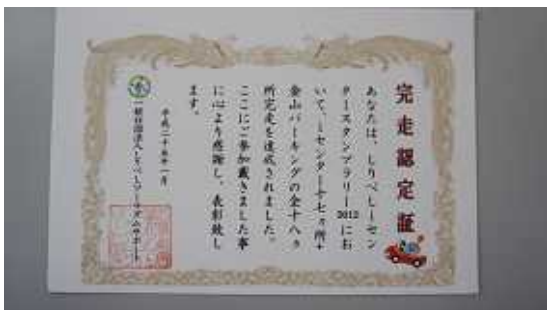 完走認定証
あなたは、しりべしiセン
タースタンプラリー2012にお
いて、iセンター十七ヶ所+
金山パーキングの全十八ヶ
所完走を達成されました。
ここにご参加戴きました事
に心より感謝し、表彰致し
ます。
平成二十五年一月
一般社団法人しりべしツーリズムサポート